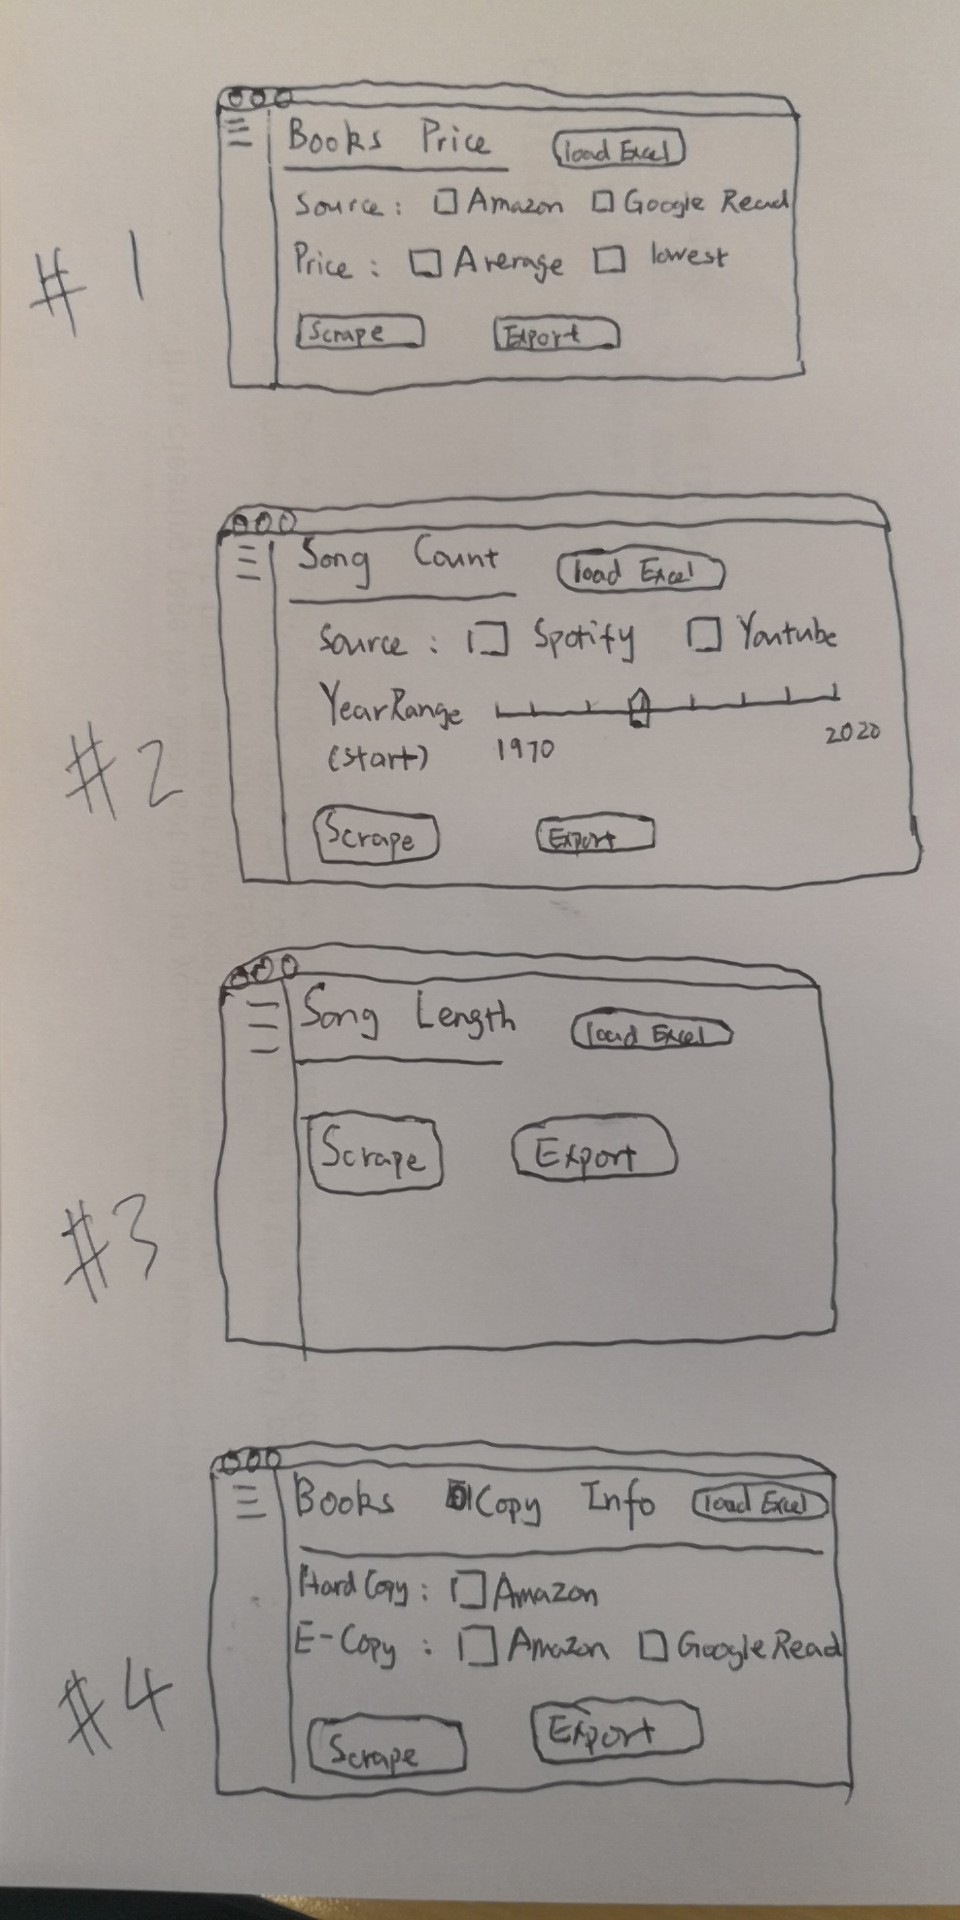 #1
Books Price load Excel
Source: Amazon Google Read
Price: Average lowest
Scrape Export
#2
Song Count load Excel
Source: Spotify Youtube
YearRange
(start) 1970 2020
Scrape Export
#3
Song Length load Excel
Scrape Export
#4
Books Copy Info load Excel
Hard Copy: Amazon
E-Copy: Amazon Google Read
Scrape Export